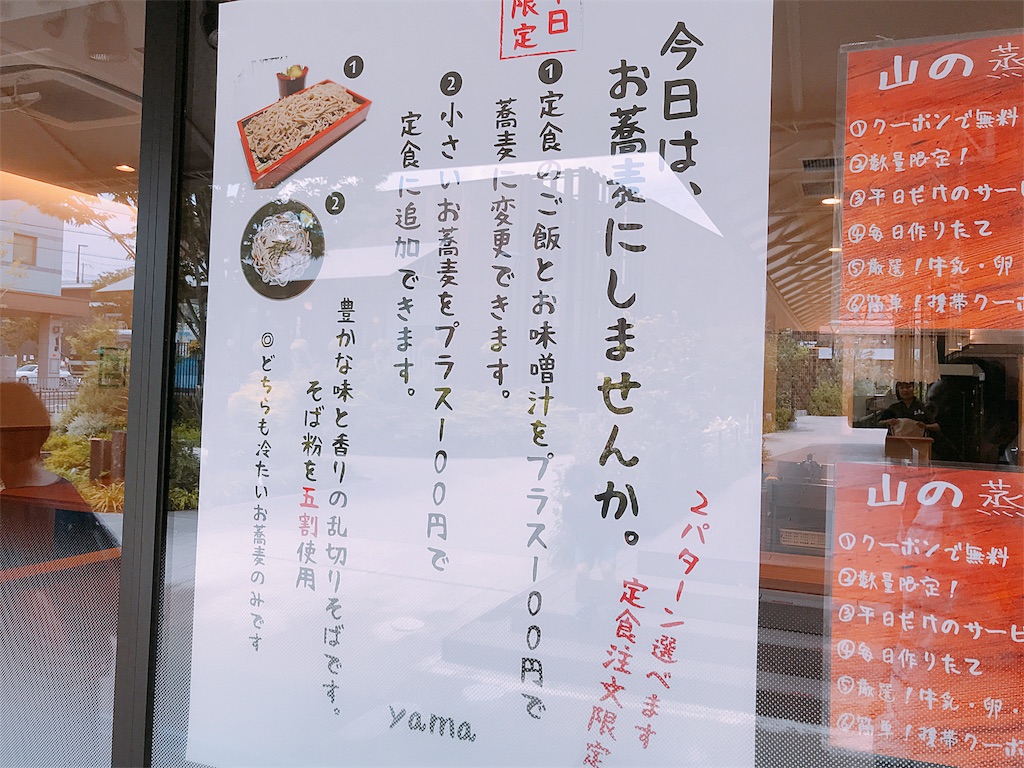 平日
限定
今日は、
お蕎麦にしませんか。
2パターン選べます
定食注文限定
❶定食のご飯とお味噌汁をプラス100円で
蕎麦に変更できます。
❷小さいお蕎麦をプラス100円で
定食に追加できます。
❶
❷
豊かな味と香りの乱切りそばです。
そば粉を五割使用
◎どちらも冷たいお蕎麦のみです
yama
山の蒸
①クーポンで無料
②数量限定!
③平日だけのサービ
④毎日作りたて
⑤厳選!牛乳・卵
⑥簡単!携帯クーポ
山の蒸
①クーポンで無料
②数量限定!
③平日だけのサービ
④毎日作りたて
⑤厳選!牛乳・卵・
⑥簡単!携帯クーポ